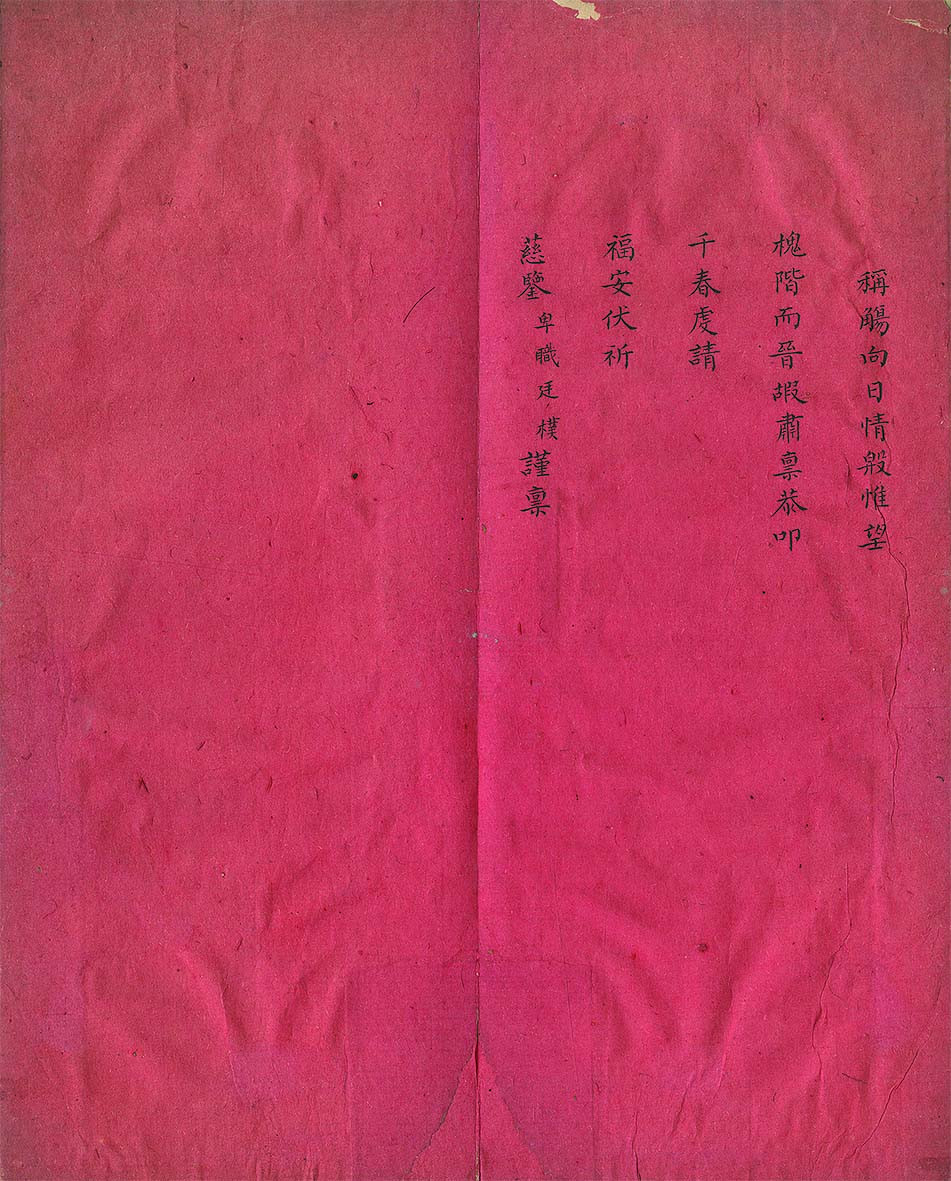 稱觴向日情殷惟望
槐階而晉嘏肅禀恭叩
千春虔請
福安伏祈
慈鑒卑職廷樸謹禀